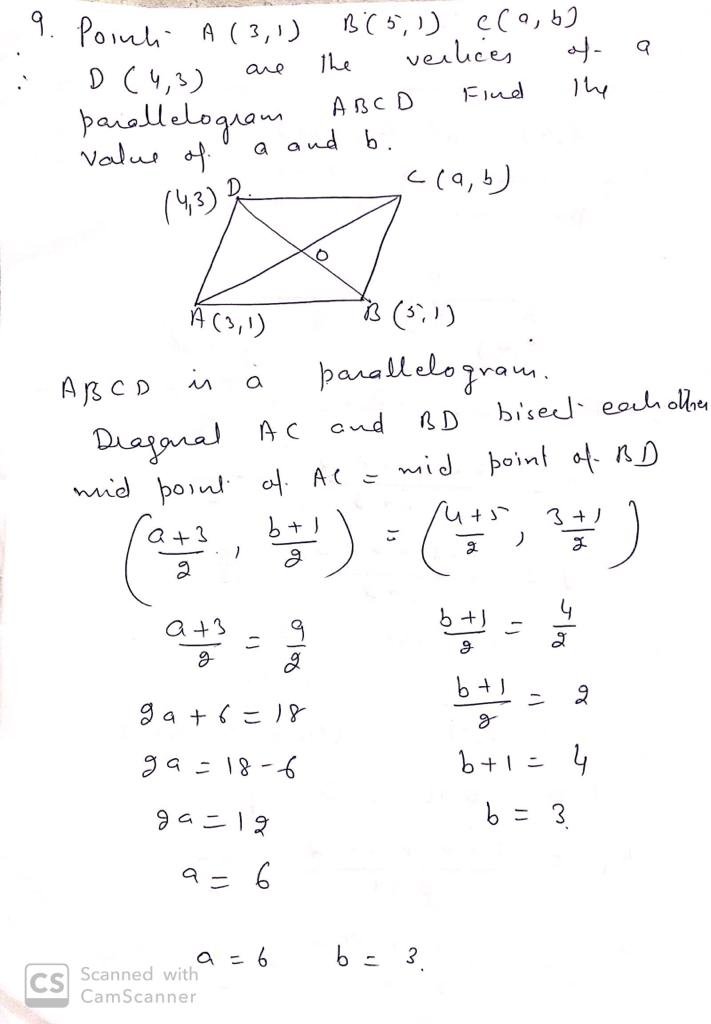 9. Points A (3,1) B (5,1) C (a,b)
∴ D (4,3) are the vertices of a
parallelogram ABCD Find the
value of a and b.
(4,3) D C (a,b)
O
A (3,1) B (5,1)
ABCD is a parallelogram.
Diagonal AC and BD bisect each other
mid point of AC = mid point of BD
((a+3)/2, (b+1)/2) = ((4+5)/2, (3+1)/2)
(a+3)/2 = 9/2 (b+1)/2 = 4/2
2a + 6 = 18 (b+1)/2 = 2
2a = 18-6 b+1 = 4
2a = 12 b = 3.
a = 6
a = 6 b = 3.
CS Scanned with
CamScanner